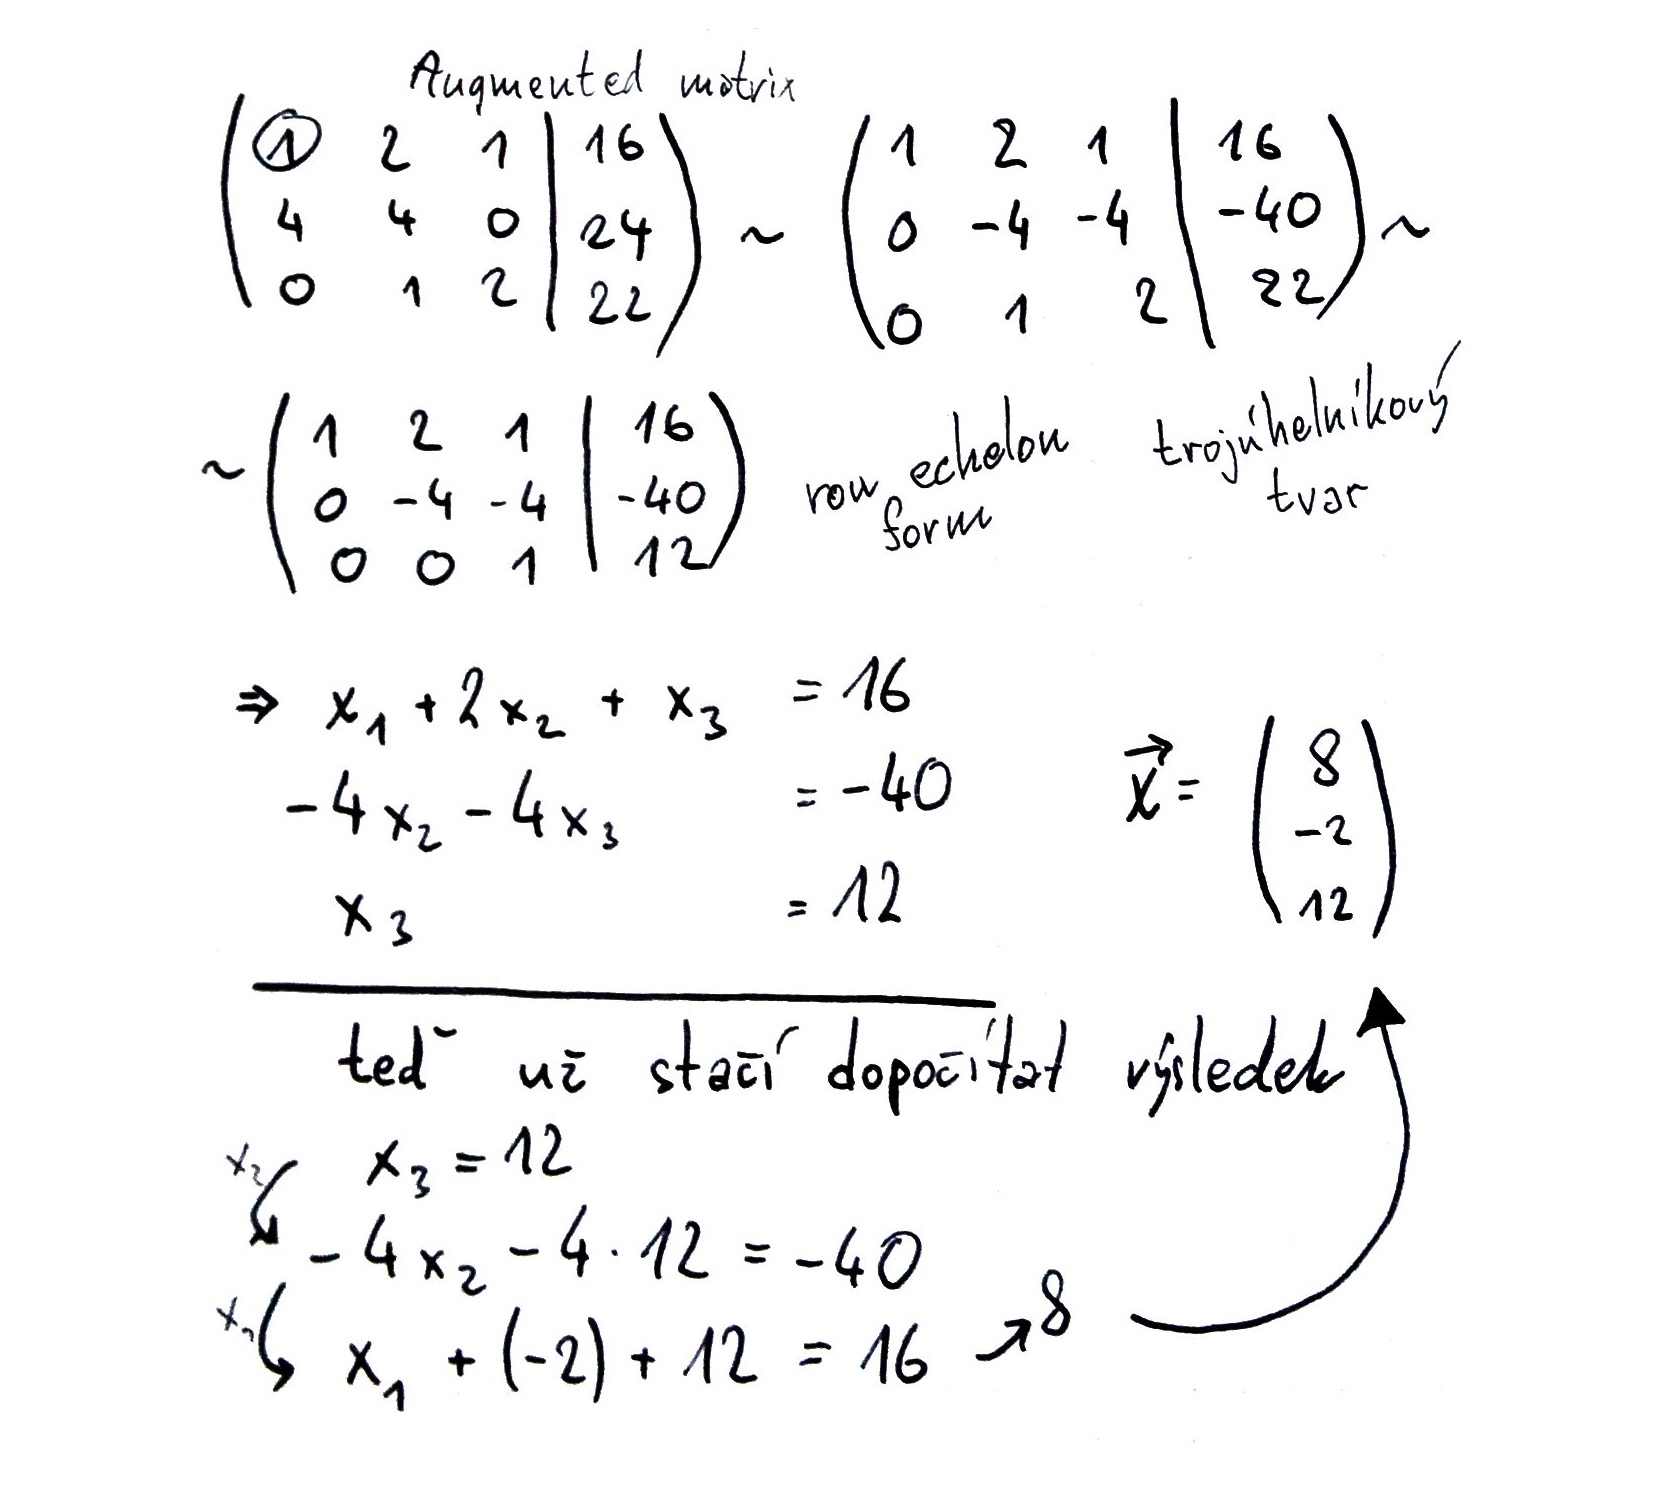 Augmented matrix
( 1 2 1 | 16 ) ~ ( 1 2 1 | 16 ) ~
( 4 4 0 | 24 ) ( 0 -4 -4 | -40 )
( 0 1 2 | 22 ) ( 0 1 2 | 22 )
~ ( 1 2 1 | 16 )
( 0 -4 -4 | -40 )
( 0 0 1 | 12 )
row echelon
form
trojúhelníkový
tvar
⇒ x₁ + 2x₂ + x₃ = 16
-4x₂ - 4x₃ = -40
x₃ = 12
x⃗ = ( 8
-2
12 )
teď už stačí dopočítat výsledek
x₃ = 12
x₂ -4x₂ - 4·12 = -40
x₁ x₁ + (-2) + 12 = 16 → 8